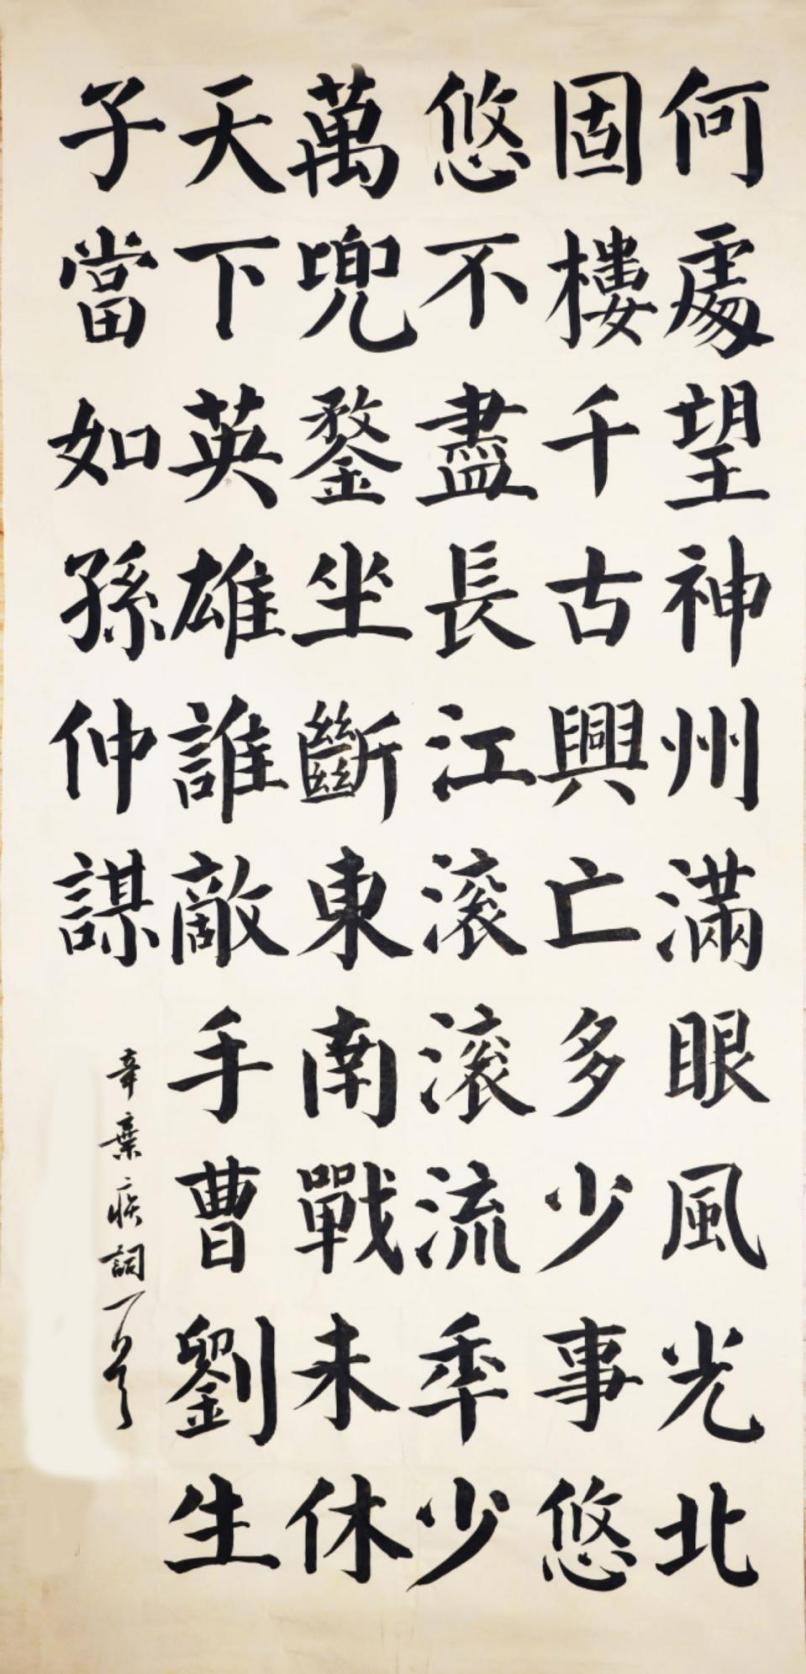 何處望神州滿眼風光北
固樓千古興亡多少事悠
悠不盡長江滚滚流年少
萬兜鍪坐斷東南戰未休
天下英雄誰敵手曹劉生
子當如孫仲謀
辛棄疾詞一首